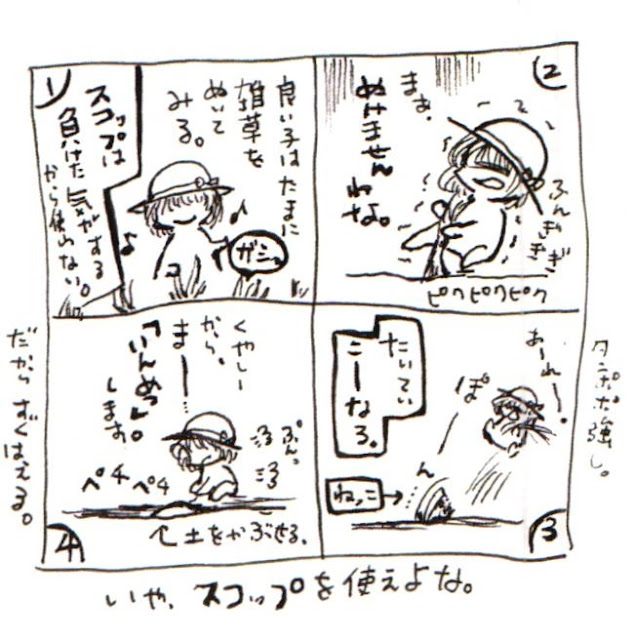 1
良い子はたまに
雑草を
ぬいて
みる。
スコップは
負けた気がする
から使わない。
ガシ。
2
まぁ、
ぬけません
わな。
ふんぎぎぎ
ピクピクピク
3
あーれー
ぽ
ん
たいてい
こーなる。
ねっこ→
タンポポ強し。
4
くやしー
から、
まー
「いんめつ」
します。
ぷん。
ペチペチ
↑土をかぶせる、
だからすぐはえる。
いや、スコップを使えよな。